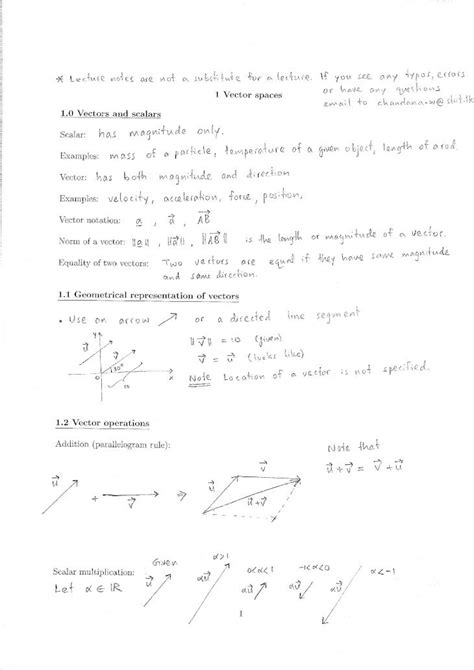 * Lecture notes are not a substitute for a lecture. If you see any typos, errors
or have any questions
1 Vector spaces
email to chandana.w@sliit.lk
1.0 Vectors and scalars
Scalar: has magnitude only.
Examples: mass of a particle, temperature of a given object, length of a rod.
Vector: has both magnitude and direction
Examples: velocity, acceleration, force, position,
Vector notation: a̲ , a⃗ , AB⃗
Norm of a vector: ||a̲|| , ||a⃗|| , ||AB⃗|| is the length or magnitude of a vector.
Equality of two vectors: Two vectors are equal if they have same magnitude
and same direction.
1.1 Geometrical representation of vectors
• Use an arrow ↗ or a directed line segment
y
||v⃗|| = 10 (given)
u⃗ v⃗
v⃗ = u⃗ (looks like)
30°
O 10 x
Note Location of a vector is not specified.
1.2 Vector operations
Addition (parallelogram rule):
Note that
u⃗ + v⃗ = v⃗ + u⃗
u⃗ + v⃗ ⇒ u⃗ v⃗ u⃗+v⃗
Scalar multiplication: Given α>1 0<α<1 -1<α<0 α<-1
Let α ∈ ℝ u⃗ αu⃗ αu⃗ αu⃗ αu⃗
1